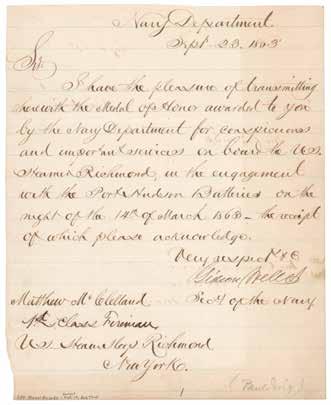 Navy Department.
Sept. 23. 1863
Sir
I have the pleasure of transmitting
herewith the Medal of Honor awarded to you
by the Navy Department for conspicuous
and important services on board the U.S.
Steamer Richmond, in the engagement
with the Port Hudson Batteries on the
night of the 14th of March 1863 – the receipt
of which please acknowledge.
Very respect &c
Gideon Welles
Matthew McClelland Secy of the Navy
1st Class Fireman
U.S. Steam Sloop Richmond
New York.